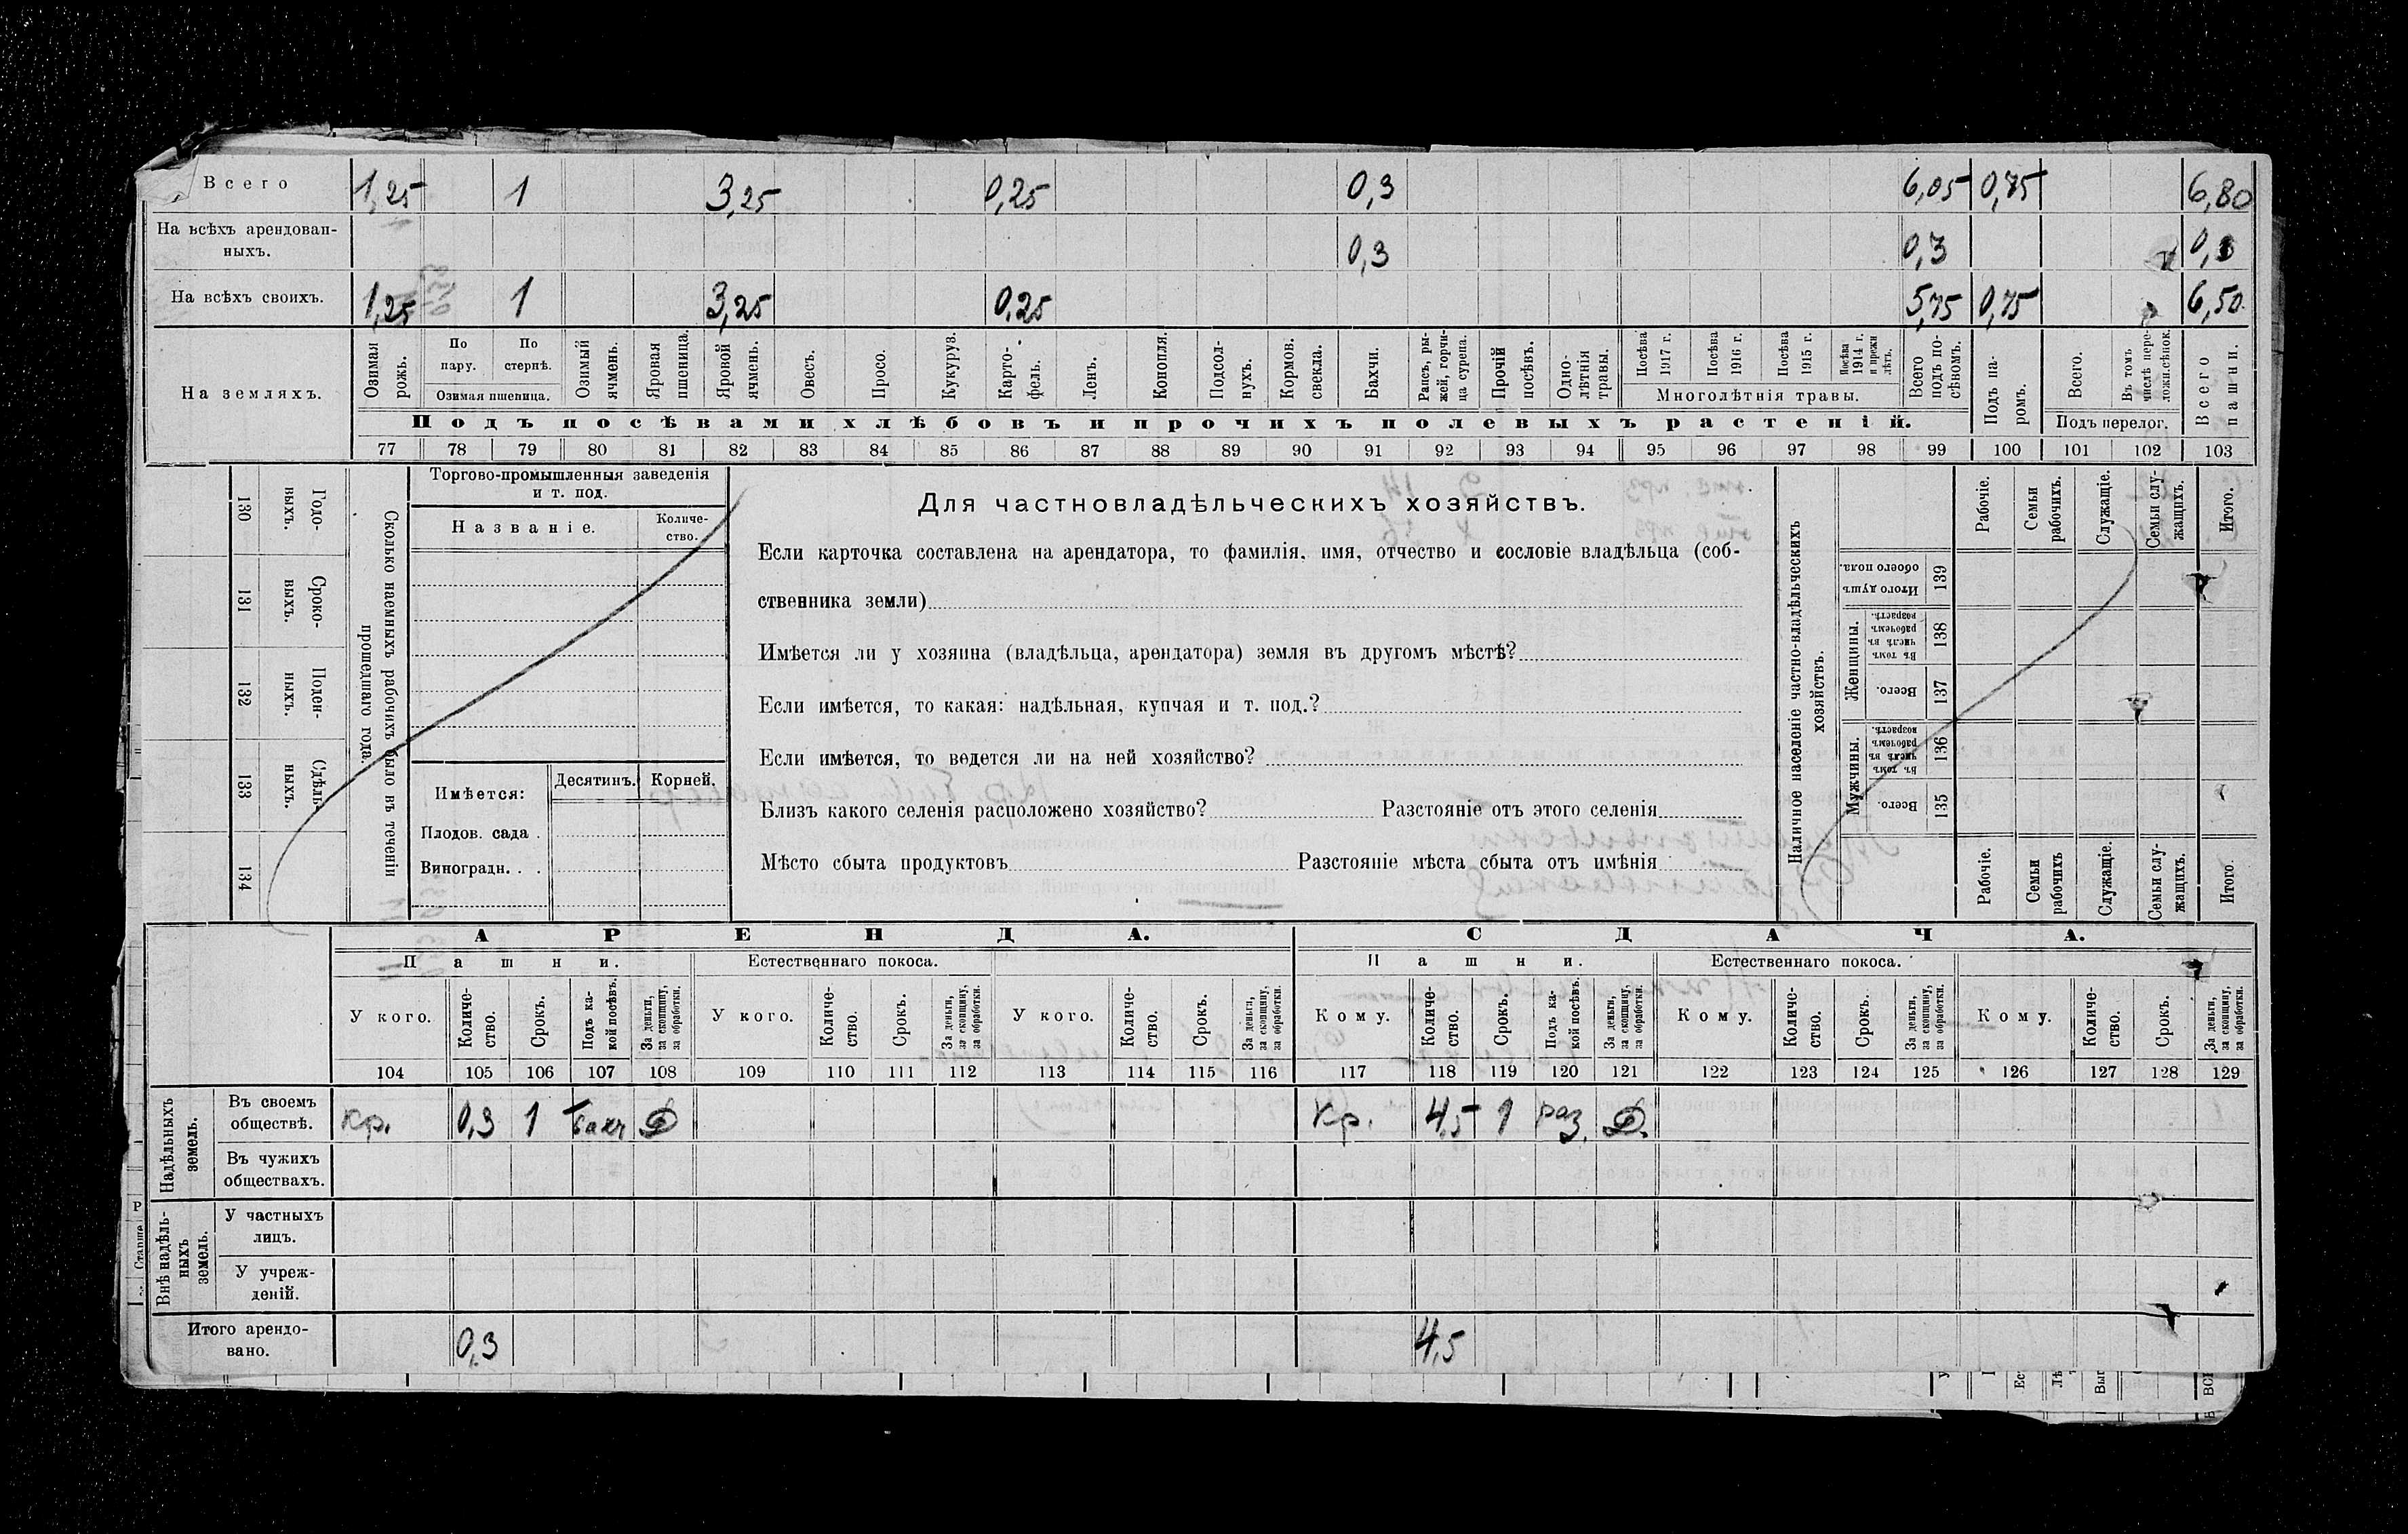 Всего 1,25 1 3,25 0,25 0,3 6,05 0,75 6,80
На всѣхъ арендован-
ныхъ. 0,3 0,3 0,3
На всѣхъ своихъ. 1,25 1 3,25 0,25 5,75 0,75 6,50
На земляхъ.
Озимая рожь.
По пару.
По стернѣ.
Озимая пшеница.
Озимый ячмень.
Яровая пшеница.
Яровой ячмень.
Овесъ.
Просо.
Кукуруз.
Карто-
фель.
Ленъ.
Конопля.
Подсол-
нухъ.
Кормов. свекла.
Бахчи.
Рапсъ, ры-
жей, горчи-
ца сурепа.
Прочій посѣвъ.
Одно-
лѣтнія травы.
Посѣва 1917 г.
Посѣва 1916 г.
Посѣва 1915 г.
Посѣва 1914 г. и прежн лѣтъ.
Многолѣтнія травы.
Всего подъ по-
сѣвомъ.
Подъ па-
ромъ.
Всего.
Въ томъ числѣ пере-
ложн.сѣнок.
Подъ перелог.
Всего пашни.
Подъ посѣвами хлѣбовъ и прочихъ полевыхъ растеній.
77 78 79 80 81 82 83 84 85 86 87 88 89 90 91 92 93 94 95 96 97 98 99 100 101 102 103
130 Годо-
выхъ.
131 Сроко-
выхъ.
132 Поден-
ныхъ.
133 Сдѣль-
ныхъ.
134
Сколько наемныхъ рабочихъ было въ теченіи
прошедшаго года.
Торгово-промышленныя заведенія
и т. под.
Названіе.
Количе-
ство.
Имѣется:
Десятинъ.
Корней.
Плодов. сада .
Виноградн. . .
Для частновладѣльческихъ хозяйствъ.
Если карточка составлена на арендатора, то фамилія, имя, отчество и сословіе владѣльца (соб-
ственника земли)
Имѣется ли у хозяина (владѣльца, арендатора) земля въ другомъ мѣстѣ?
Если имѣется, то какая: надѣльная, купчая и т. под.?
Если имѣется, то ведется ли на ней хозяйство?
Близъ какого селенія расположено хозяйство? Разстояніе отъ этого селенія
Мѣсто сбыта продуктовъ Разстояніе мѣста сбыта отъ имѣнія
Наличное населеніе частно-владѣльческихъ
хозяйствъ.
Рабочіе.
Семьи рабочихъ.
Служащіе.
Семьи слу-
жащихъ.
Итого.
Итого душъ обоего пола. 139
Женщины.
Въ томъ числѣ въ рабочемъ возрастѣ. 138
Всего. 137
Мужчины.
Въ томъ числѣ въ рабочемъ возрастѣ. 136
Всего. 135
Рабочіе.
Семьи рабочихъ
Служащіе.
Семьи слу-
жащихъ.
Итого
АРЕНДА. СДАЧА.
Пашни. Естественнаго покоса. Пашни. Естественнаго покоса.
У кого.
Количе-
ство.
Срокъ.
Подъ ка-
кой посѣвъ.
За деньги,
за скопщину,
за обработки.
У кого.
Количе-
ство.
Срокъ.
За деньги,
за скопщину,
за обработки.
У кого.
Количе-
ство.
Срокъ.
За деньги,
за скопщину,
за обработки.
Кому.
Количе-
ство.
Срокъ.
Подъ ка-
кой посѣвъ.
За деньги,
за скопщину,
за обработки.
Кому.
Количе-
ство.
Срокъ.
За деньги,
за скопщину,
за обработки.
Кому.
Количе-
ство.
Срокъ.
За деньги,
за скопщину,
за обработки.
104 105 106 107 108 109 110 111 112 113 114 115 116 117 118 119 120 121 122 123 124 125 126 127 128 129
Надѣльныхъ
земель.
Въ своемъ
обществѣ. Кр. 0,3 1 бахч Д Кр. 4,5 1 раз. Д.
Въ чужихъ
обществахъ.
Внѣ надѣль-
ныхъ
земель.
У частныхъ
лицъ.
У учреж-
деній.
Итого арендо-
вано. 0,3 4,5